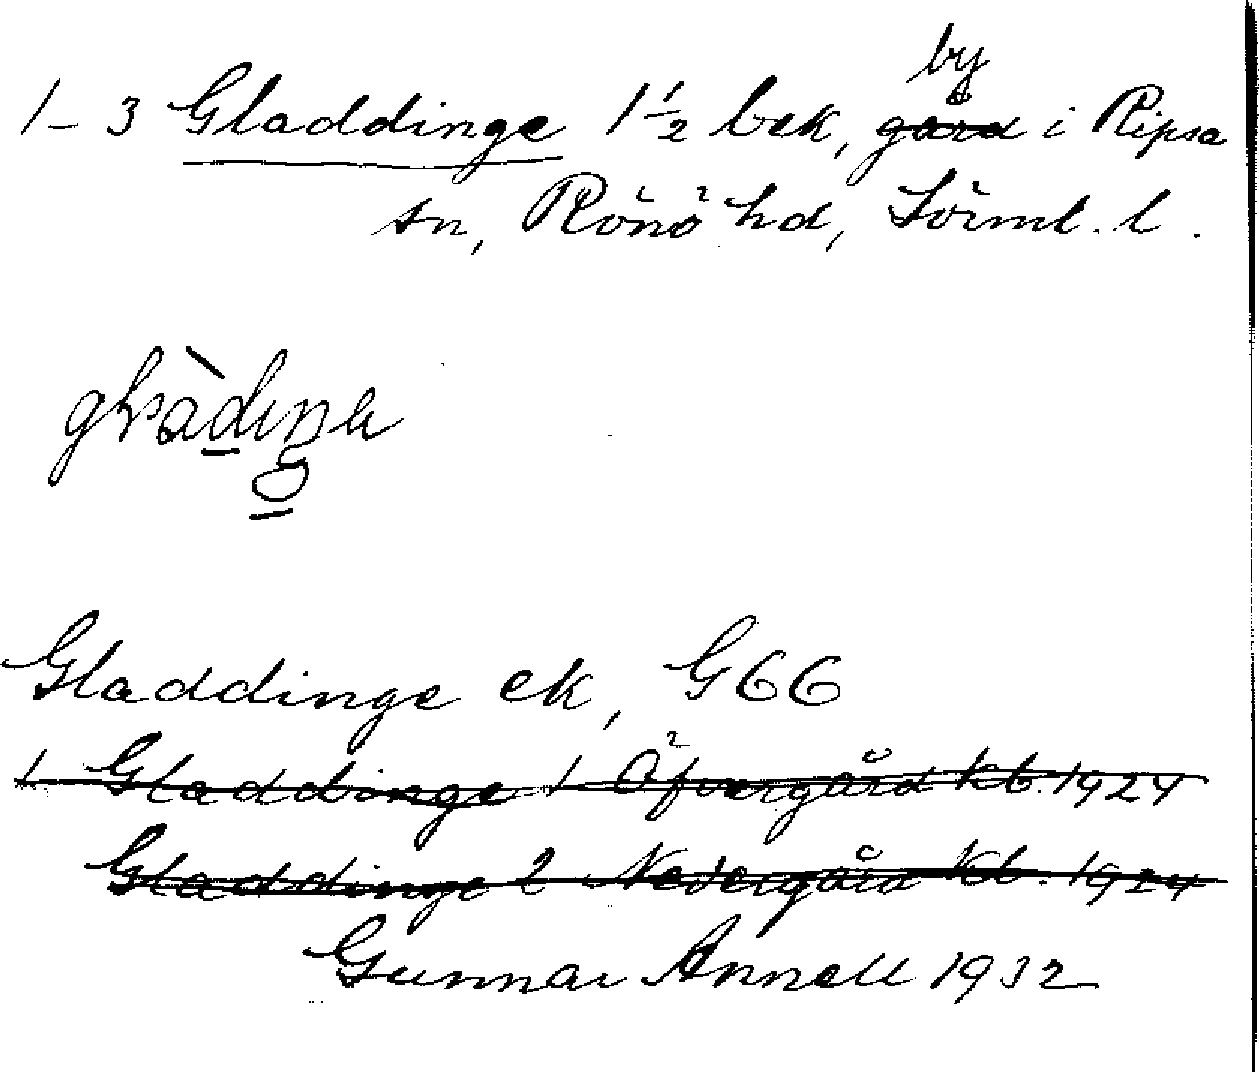 by
1-3 Gladdinge 1 1/2 bek, gård i Ripsa
sn, Rönö hd, Sörml. l.
Gladdinge ek, G66
1 Gladdinge 1 Öfvergård kb. 1924
Gladdinge 2 Nedergård kb. 1924
Gunnar Annell 1932